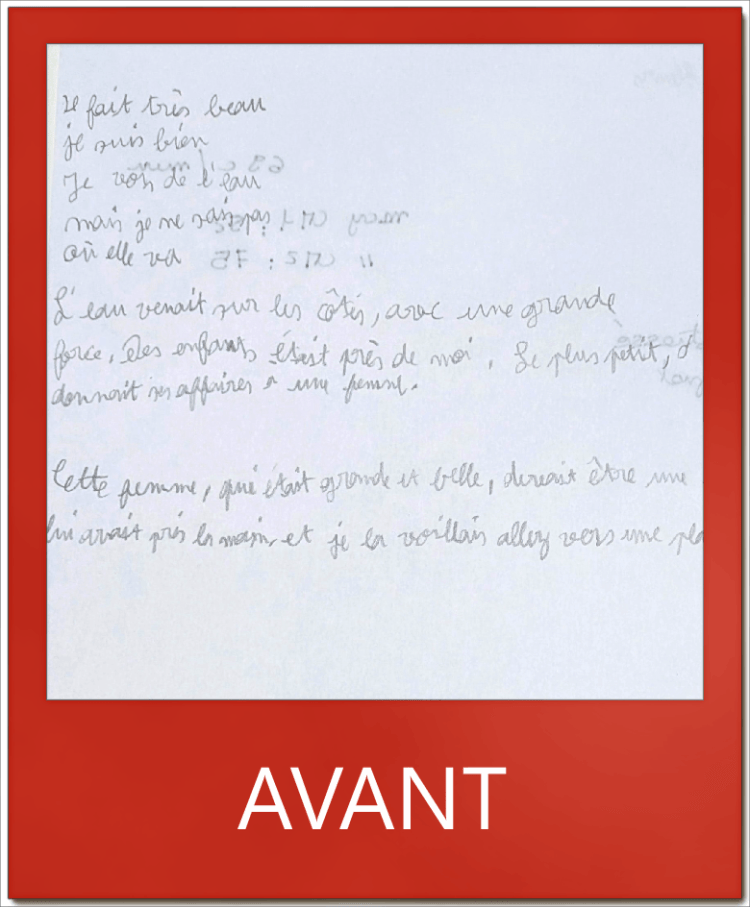 Il fait très beau
je suis bien
Je vois de l'eau
mais je ne sais pas
où elle va
L'eau venait sur les côtés, avec une grande
force, Des enfants était près de moi. Le plus petit, d
donnait ses affaires a une femme.
Cette femme, qui était grande et belle, devait être une
lui avait pris la main, et je la voillais allez vers une pla
AVANT